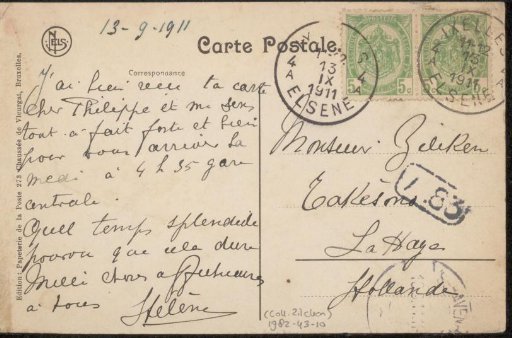 13-9-1911
NELS
Carte Postale.
Correspondance
J'ai bien reçu ta carte
cher Philippe et me sens
tout à fait forte et bien
pour vous arriver
à 4 h 35 gare
centrale.
Quel temps splendide
pourvu que cela dure
Mille choses
à tous Hélène
Edition: Papeterie de la Poste 273 Chaussée de Vleurgat, Bruxelles.
IXELLES
11-12
13
IX
1911
ELSENE
4 A
5c
IXELLES
11-12
13
IX
1911
ELSENE
4 A
Monsieur Zilcken
1.83
La Haye
Hollande
(Coll. Zilcken)
1982-43-10